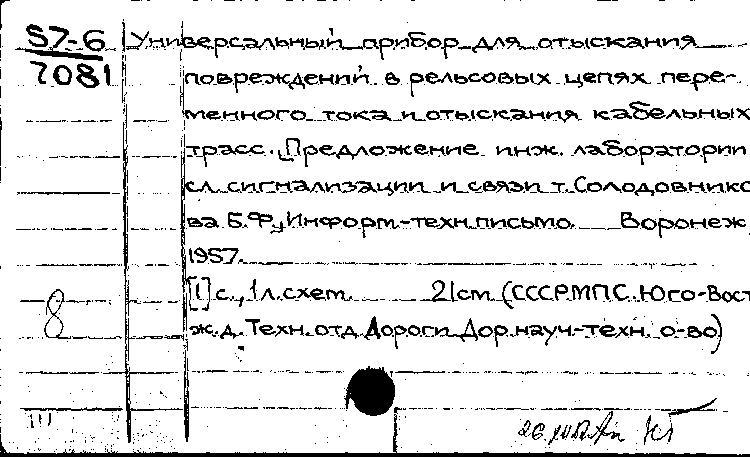 57-6 Универсальный прибор для отыскания
7081 повреждений в рельсовых цепях пере-
менного тока и отыскания кабельных
трасс. [Предложение инж. лаборатории
сл. сигнализации и связи т. Солодовнико-
ва Б.Ф.] Информ-техн. письмо. Воронеж,
1957.
[1] с., 1 л. схем. 21 cm (СССР. МПС. Юго-Вост
ж.д. Техн. отд Дороги. Дор. науч-техн. о-во)
8